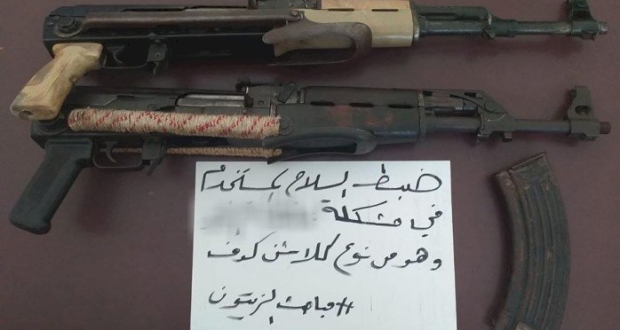 ضبط السلاح المستخدم
في مشكلة
وهو من نوع كلاشن كوف
#مباحث الزيتون